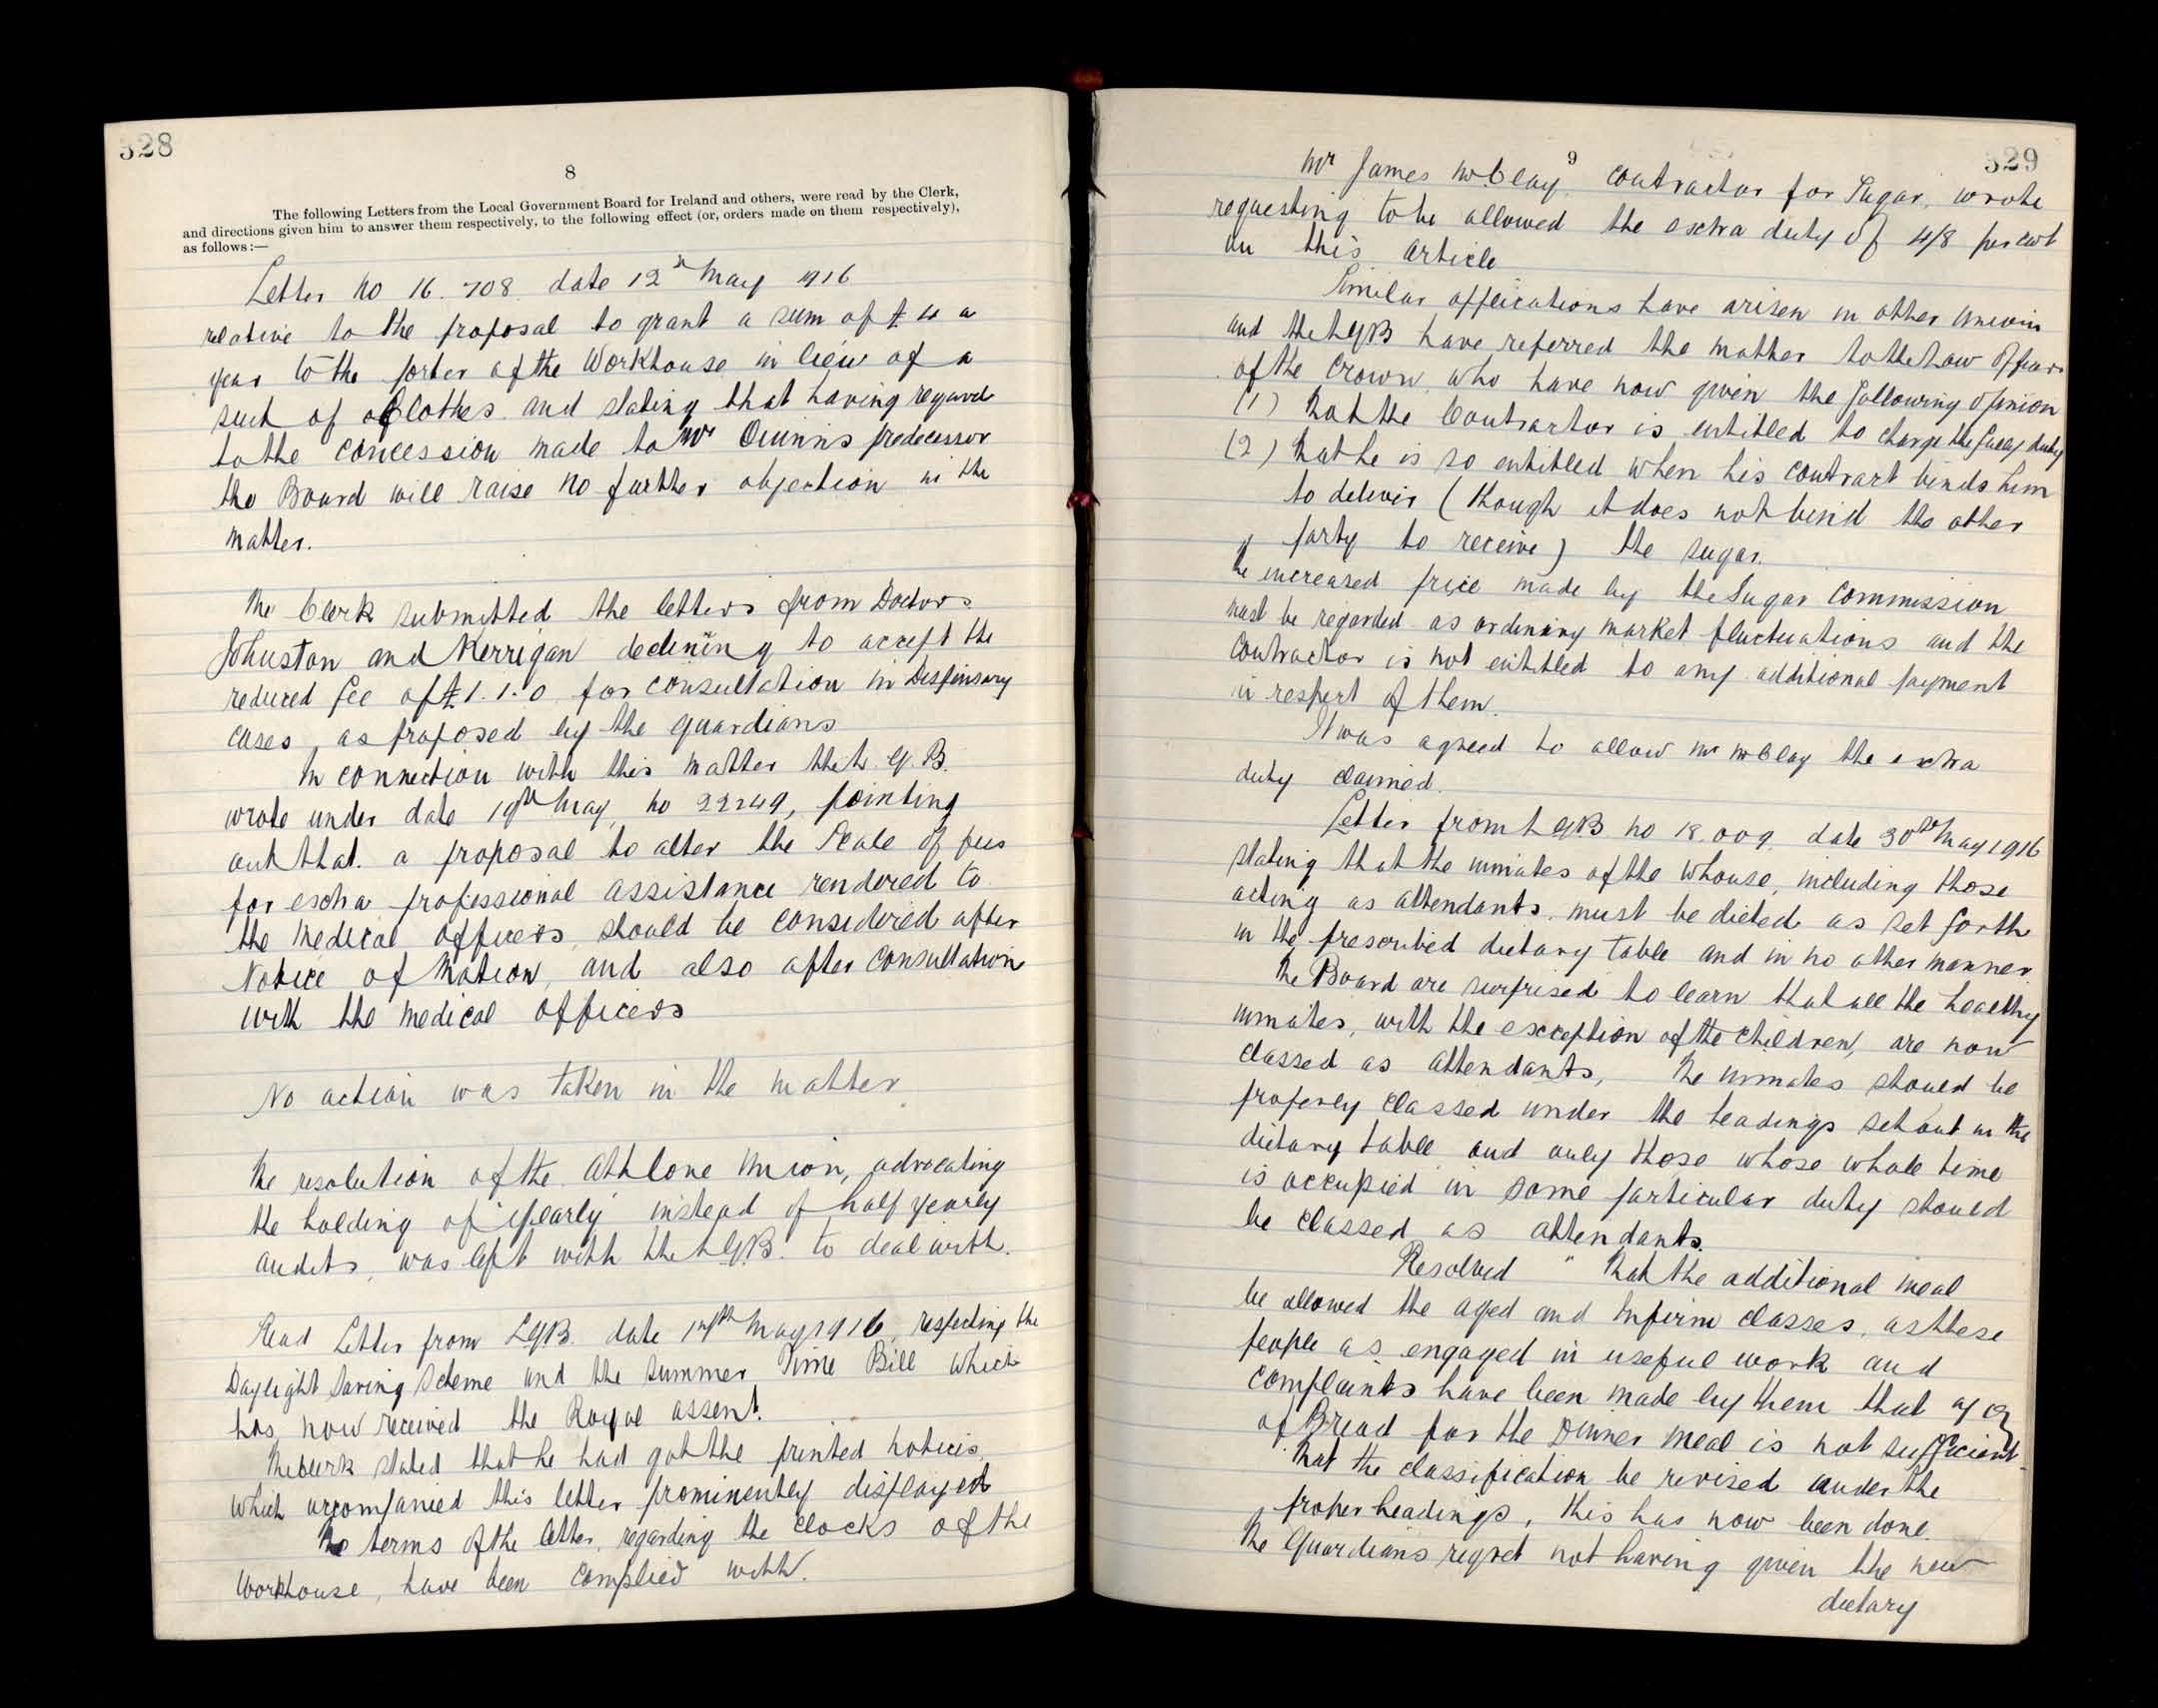 328
8
The following Letters from the Local Government Board for Ireland and others, were read by the Clerk,
and directions given him to answer them respectively, to the following effect (or, orders made on them respectively),
as follows:—
Letter No 16.708 date 12th May 1916
relative to the proposal to grant a sum of £4 a
year to the porter of the Workhouse in lieu of a
suit of Clothes and stating that having regard
to the concession made to Mr Quinn's predecessor
the Board will raise no further objection in the
matter.
The Clerk submitted the letters from Doctors
Johnston and Kerrigan declining to accept the
reduced fee of £1.1.0 for consultation in Dispensary
cases, as proposed by the guardians
In connection with this matter the L.G.B.
wrote under date 19th May, No 22249, pointing
out that a proposal to alter the Scale of fees
for extra professional assistance rendered to
the Medical Officers should be considered after
Notice of Motion, and also after consultation
with the medical officers
No action was taken in the matter
The resolution of the Athlone Union, advocating
the holding of yearly instead of half yearly
audits, was left with the LGB. to deal with.
Read Letter from LGB. date May 1916, respecting the
Daylight Saving Scheme and the Summer Time Bill which
has now received the Royal assent.
The Clerk stated that he had got the printed notices
which accompanied this letter prominently displayed
The terms of the letter, regarding the clocks of the
Workhouse, have been complied with.
9
329
Mr James McClay, contractor for Sugar, wrote
requesting to be allowed the extra duty of 4/8 per cwt
on this article
Similar applications have arisen in other Unions
and the LGB have referred the matter to the Law Officers
of the Crown who have now given the following opinion
(1) That the Contractor is entitled to charge the duty
(2) That he is so entitled when his contract binds him
to deliver (though it does not bind the other
party to receive) the sugar.
The increased price made by the Sugar Commission
must be regarded as ordinary market fluctuations and the
contractor is not entitled to any additional payment
in respect of them.
It was agreed to allow Mr McClay the extra
duty claimed.
Letter from LGB no 18.009. date 30th May 1916
stating that the inmates of the Whouse, including those
acting as attendants, must be dieted as set forth
in the prescribed dietary table and in no other manner
The Board are surprised to learn that all the healthy
inmates, with the exception of the children, are now
classed as attendants, The inmates should be
properly classed under the headings set out in the
dietary table and only those whose whole time
is occupied in some particular duty should
be classed as attendants.
Resolved " That the additional meal
be allowed the aged and Infirm classes, as these
people as engaged in useful work and
complaints have been made by them that 4 oz
of Bread for the Dinner meal is not sufficient
That the classification be revised under the
proper headings, this has now been done.
The Guardians regret not having given the new
dietary